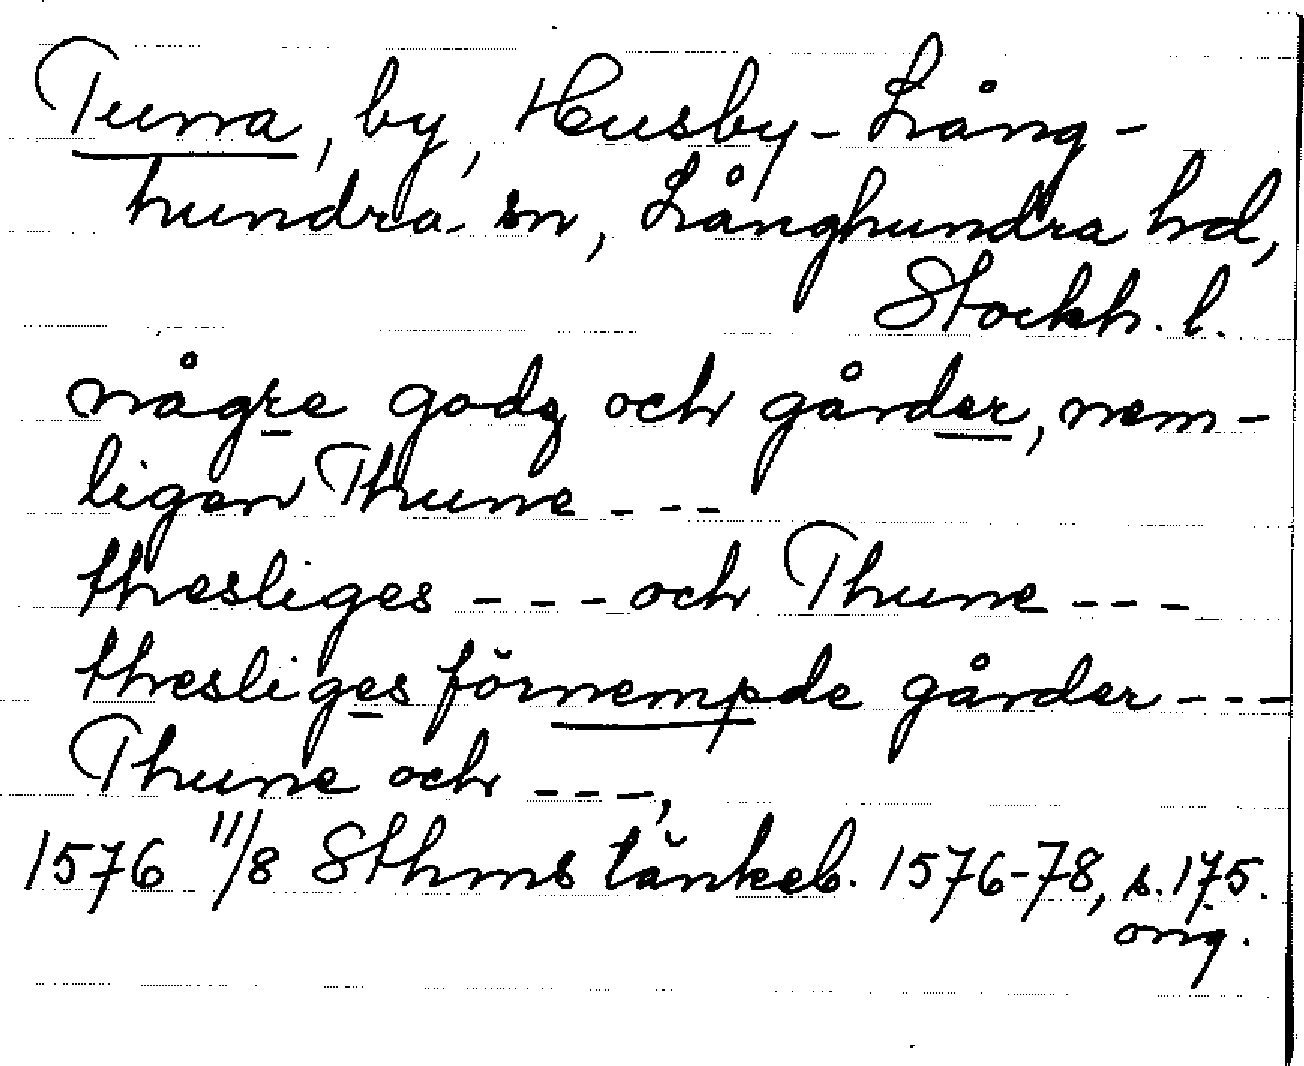 Tuna, by, Husby-Lång-
hundra sn, Långhundra hd,
Stockh. l.
någre godz och gårder, nem-
ligen Thune ---
thesliges --- och Thune ---
thesliges förnempde gårder ---
Thune och ---,
1576 11/8 Sthms tänkeb. 1576-78, s. 175.
orig.